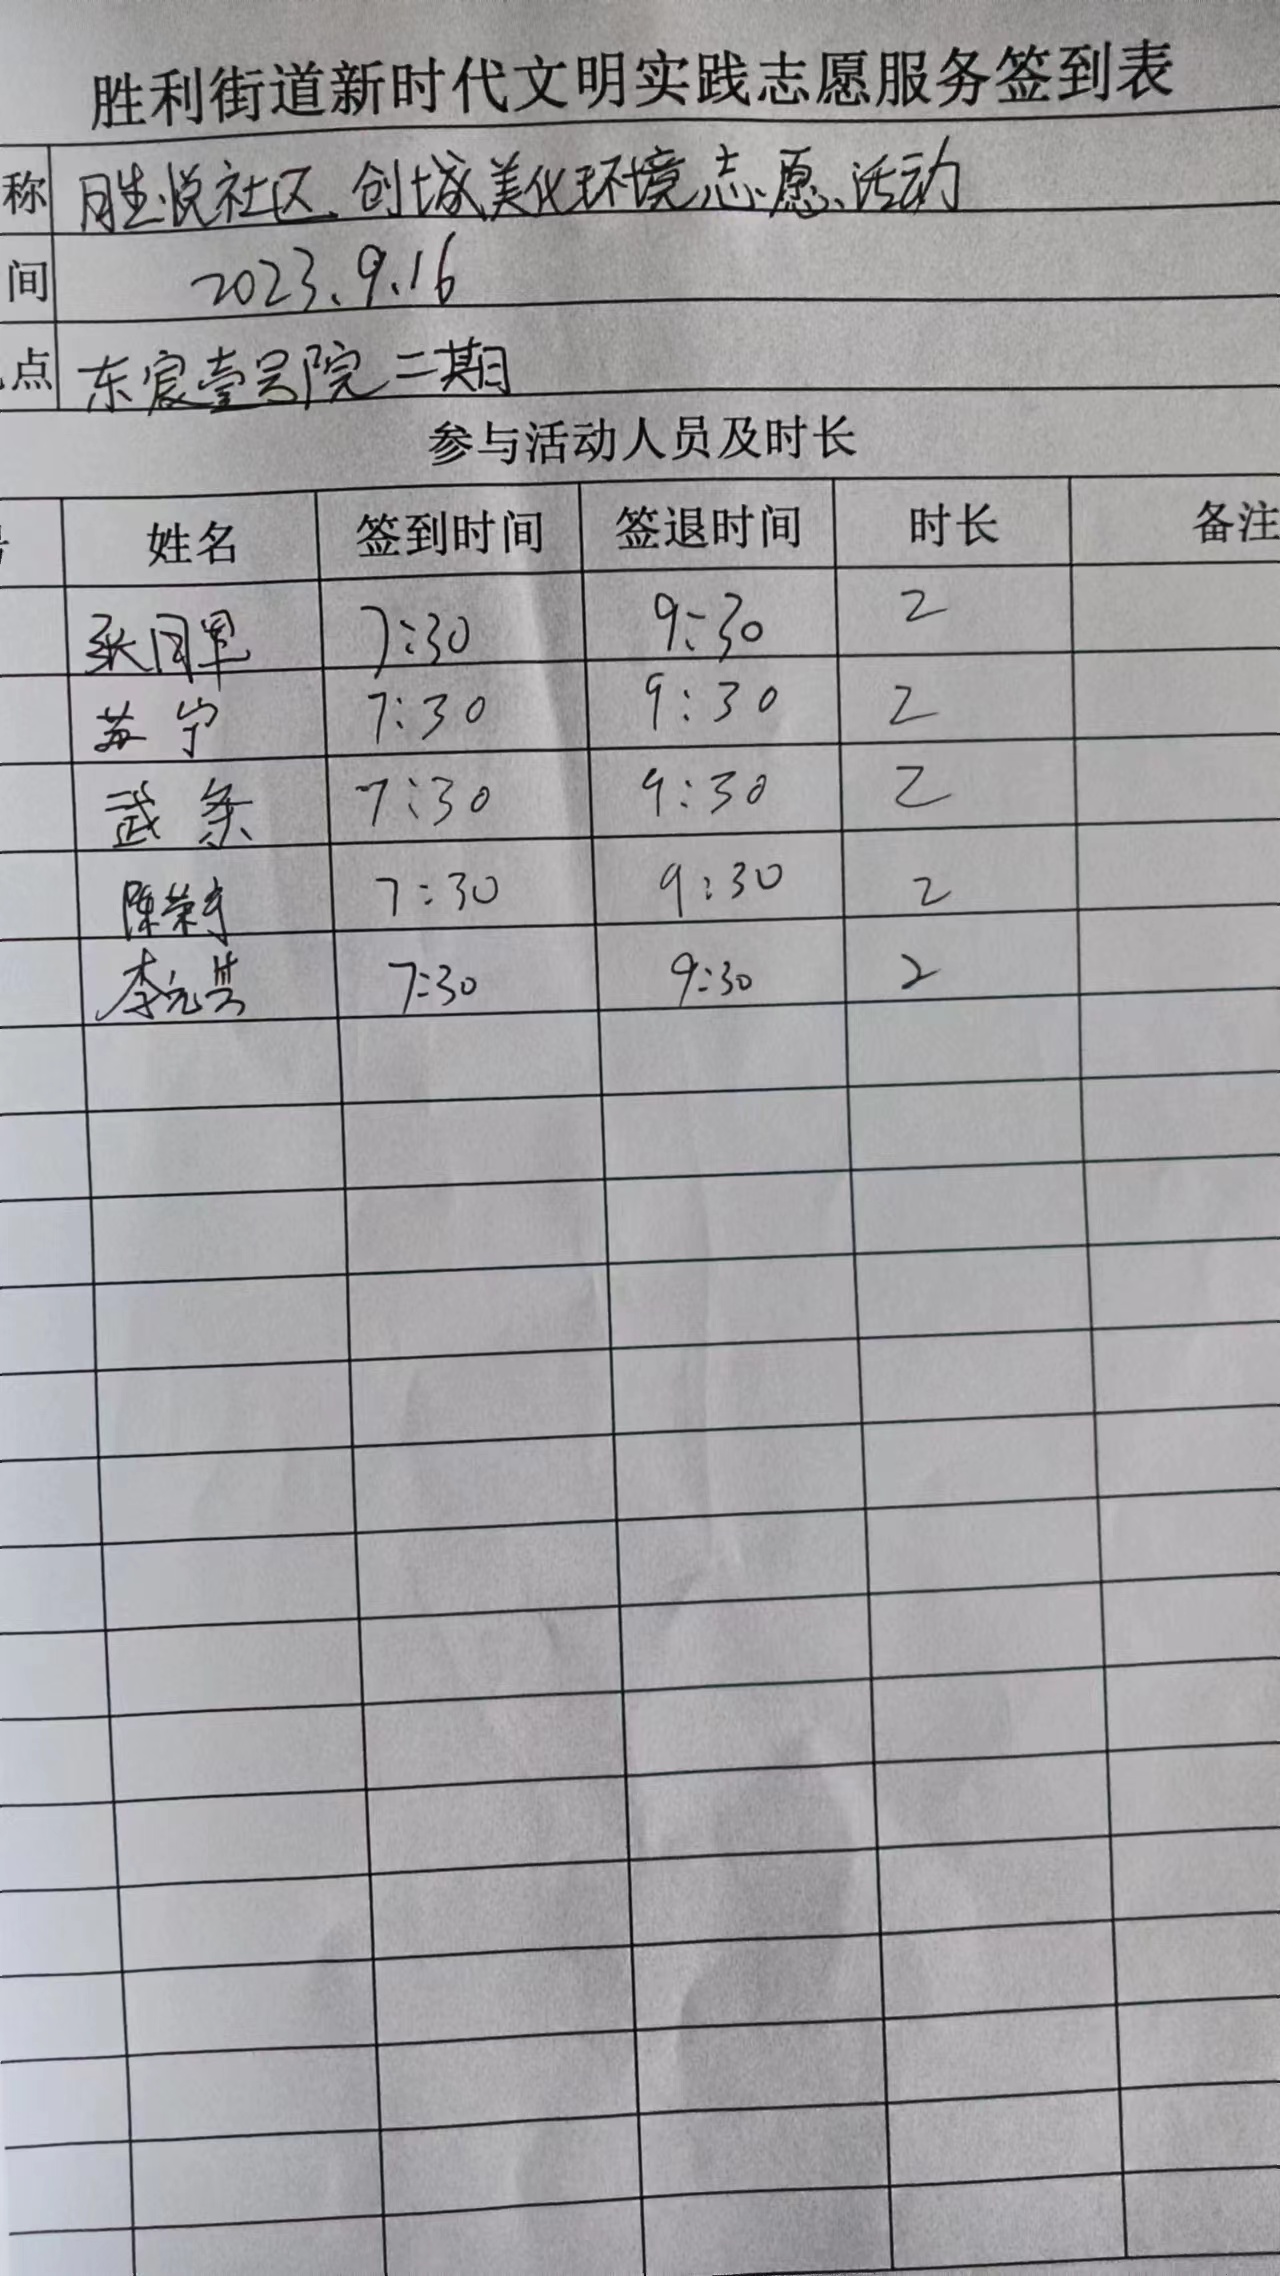 胜利街道新时代文明实践志愿服务签到表
称 胜悦社区创城美化环境志愿活动
间 2023.9.16
点 东宸壹号院二期
参与活动人员及时长
姓名 签到时间 签退时间 时长 备注
张同军 7:30 9:30 2
苏宁 7:30 9:30 2
武条 7:30 9:30 2
陈荣 7:30 9:30 2
李元 7:30 9:30 2